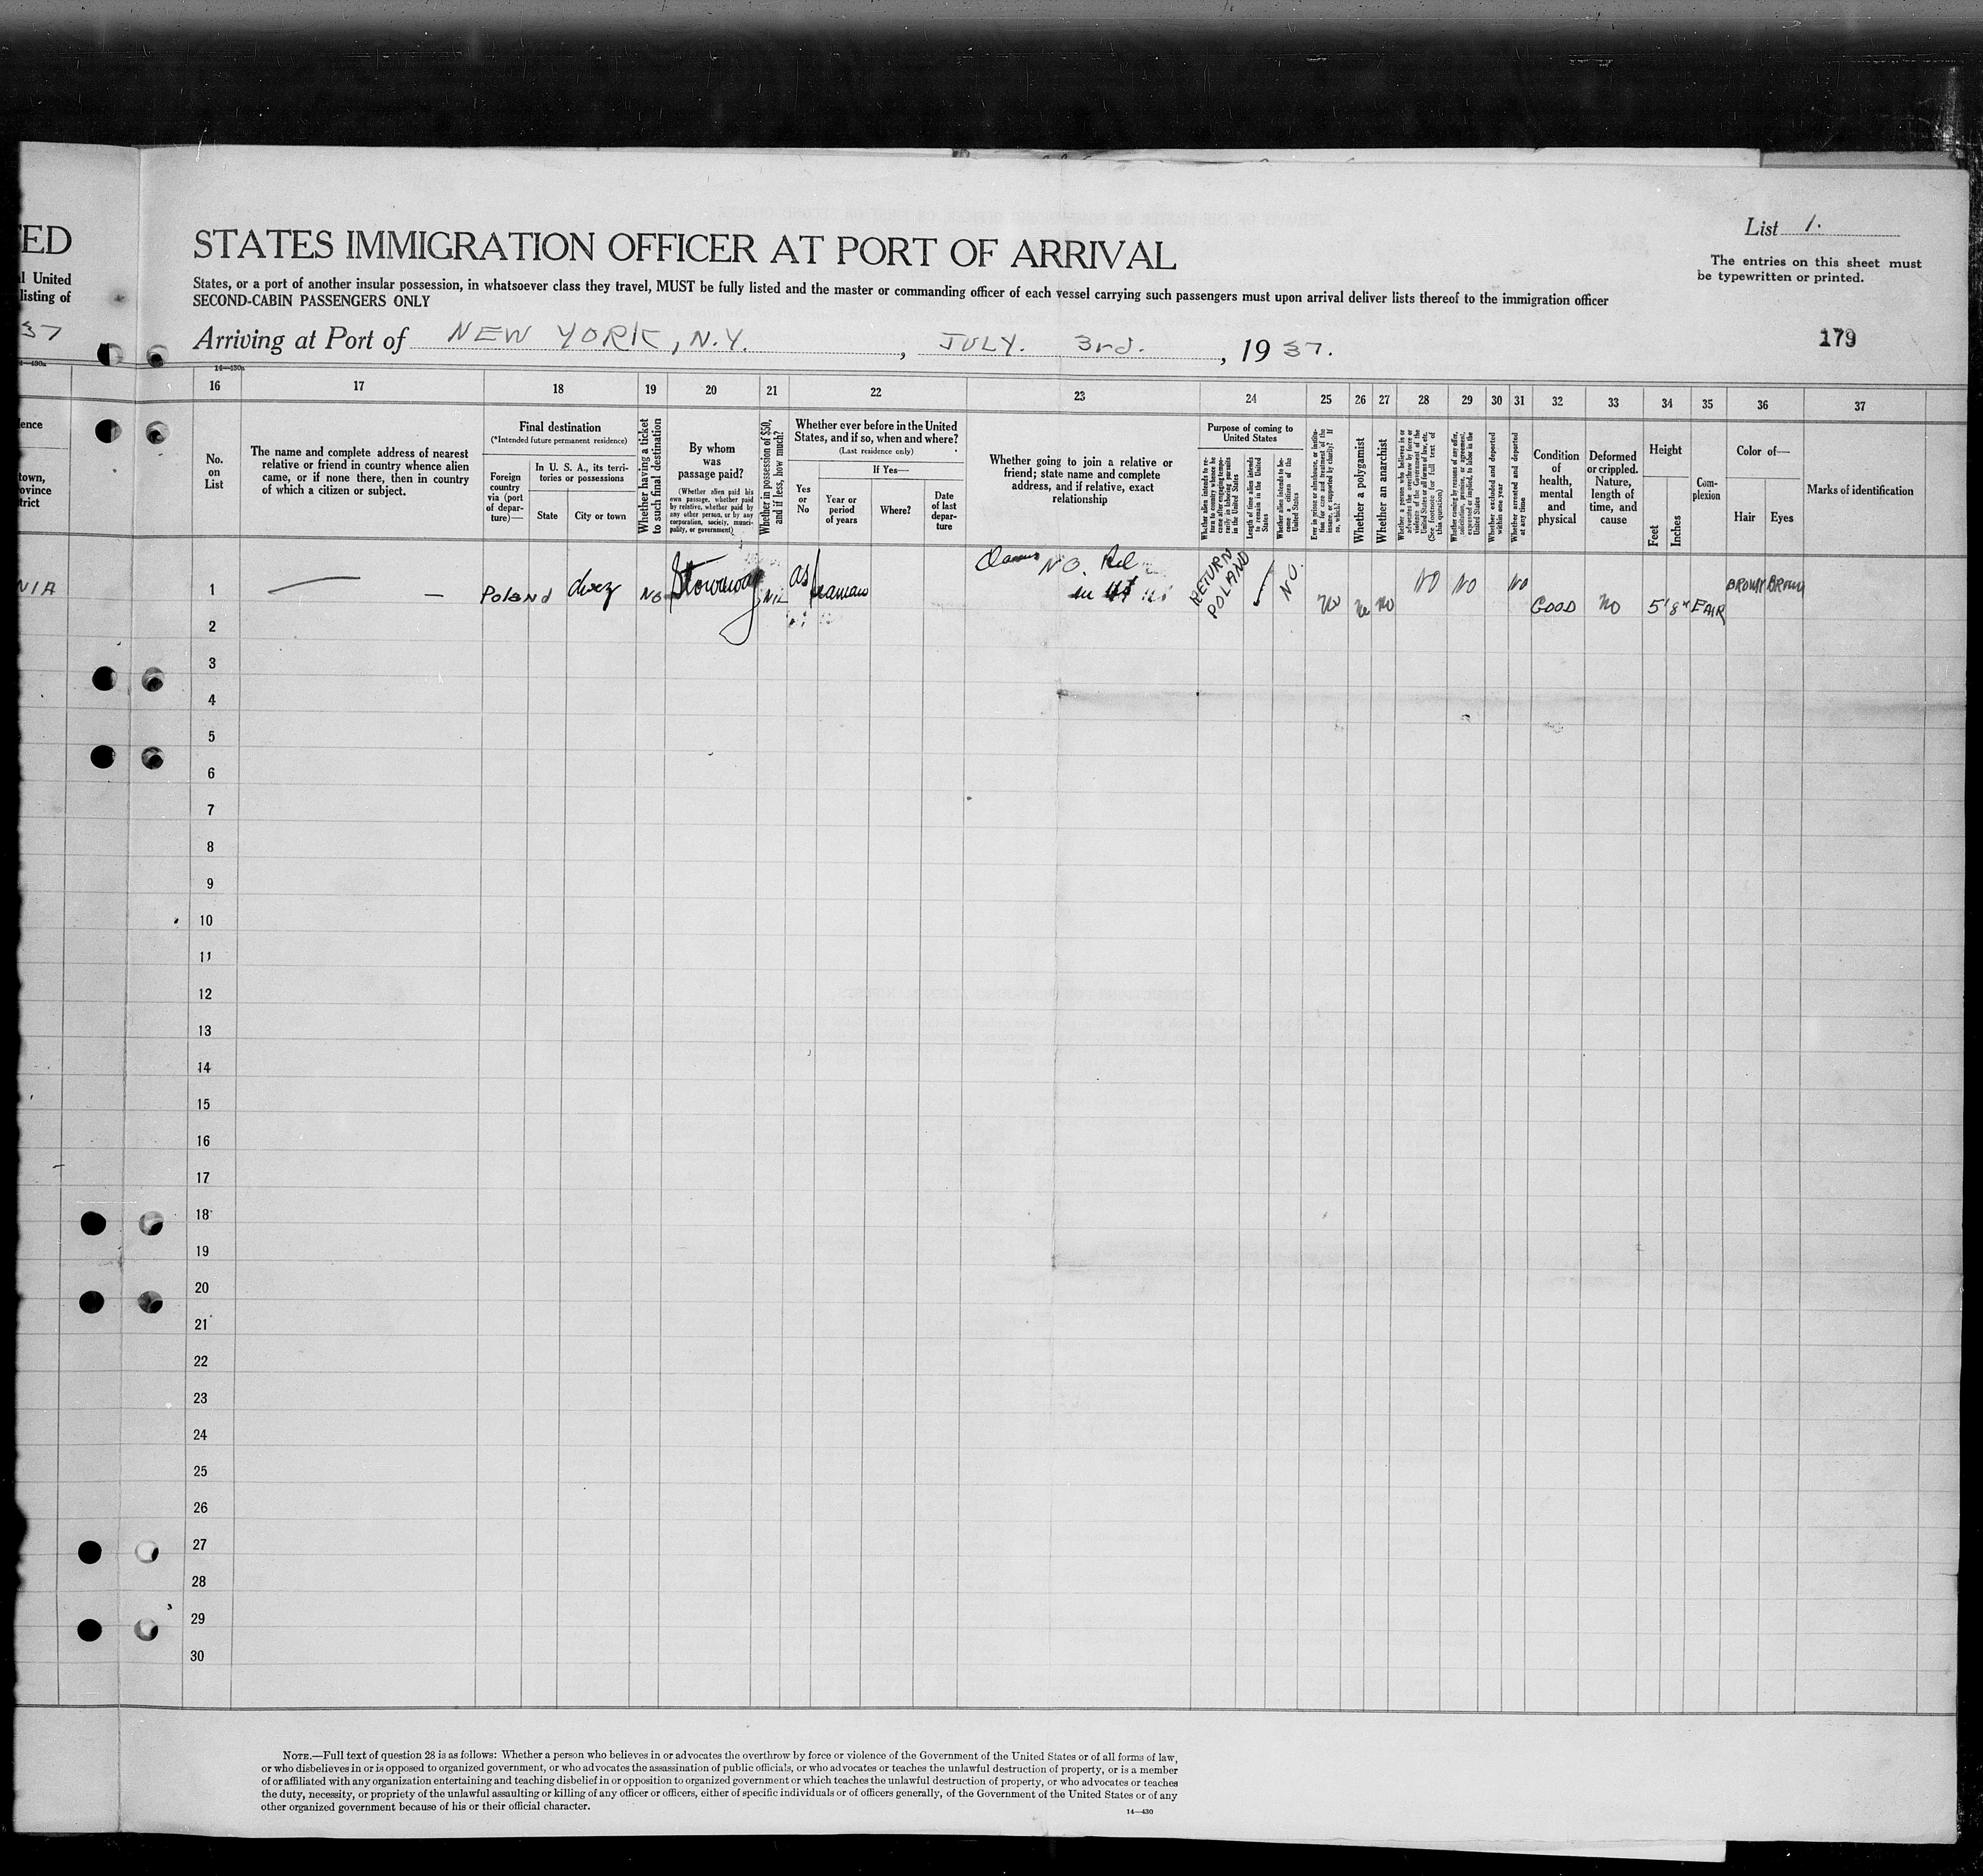 ED
STATES IMMIGRATION OFFICER AT PORT OF ARRIVAL
List 1.
The entries on this sheet must
be typewritten or printed.
l United
listing of
States, or a port of another insular possession, in whatsoever class they travel, MUST be fully listed and the master or commanding officer of each vessel carrying such passengers must upon arrival deliver lists thereof to the immigration officer
SECOND-CABIN PASSENGERS ONLY
37
Arriving at Port of NEW YORK, N.Y. , JULY. 3rd. , 19 37.
179
14—430a
16 17 18 19 20 21 22 23 24 25 26 27 28 29 30 31 32 33 34 35 36 37
No.
on
List
The name and complete address of nearest
relative or friend in country whence alien
came, or if none there, then in country
of which a citizen or subject.
Final destination
(*Intended future permanent residence)
Foreign
country
via (port
of depar-
ture)—
In U. S. A., its terri-
tories or possessions
State
City or town
Whether having a ticket
to such final destination
By whom
was
passage paid?
(Whether alien paid his
own passage, whether paid
by relative, whether paid by
any other person, or by any
corporation, society, munici-
pality, or government)
Whether in possession of $50,
and if less, how much?
Whether ever before in the United
States, and if so, when and where?
(Last residence only)
Yes
or
No
If Yes—
Year or
period
of years
Where?
Date
of last
depar-
ture
Whether going to join a relative or
friend; state name and complete
address, and if relative, exact
relationship
Purpose of coming to
United States
Whether alien intends to re-
turn to country whence he
came after engaging tempo-
rarily in laboring pursuits
in the United States
Length of time alien intends
to remain in the United
States
Whether alien intends to be-
come a citizen of the
United States
Ever in prison or almshouse, or institu-
tion for care and treatment of the
insane, or supported by charity? If
so, which?
Whether a polygamist
Whether an anarchist
Whether a person who believes in or
advocates the overthrow by force or
violence of the Government of the
United States or all forms of law, etc.
(See footnote for full text of
this question)
Whether coming by reasons of any offer,
solicitation, promise, or agreement,
expressed or implied, to labor in the
United States
Whether excluded and deported
within one year
Whether arrested and deported
at any time
Condition
of
health,
mental
and
physical
Deformed
or crippled.
Nature,
length of
time, and
cause
Height
Feet
Inches
Com-
plexion
Color of—
Hair
Eyes
Marks of identification
ence
town,
ovince
trict
NIA
1 — — Poland NO Stowaway NIL as seaman Claims NO. Rel in US RETURN POLAND ✓ NO. No No No NO NO NO GOOD No 5' 8" FAIR BROWN BROWN
2
3
4
5
6
7
8
9
10
11
12
13
14
15
16
17
18
19
20
21
22
23
24
25
26
27
28
29
30
NOTE.—Full text of question 28 is as follows: Whether a person who believes in or advocates the overthrow by force or violence of the Government of the United States or of all forms of law,
or who disbelieves in or is opposed to organized government, or who advocates the assassination of public officials, or who advocates or teaches the unlawful destruction of property, or is a member
of or affiliated with any organization entertaining and teaching disbelief in or opposition to organized government or which teaches the unlawful destruction of property, or who advocates or teaches
the duty, necessity, or propriety of the unlawful assaulting or killing of any officer or officers, either of specific individuals or of officers generally, of the Government of the United States or of any
other organized government because of his or their official character.
14—430